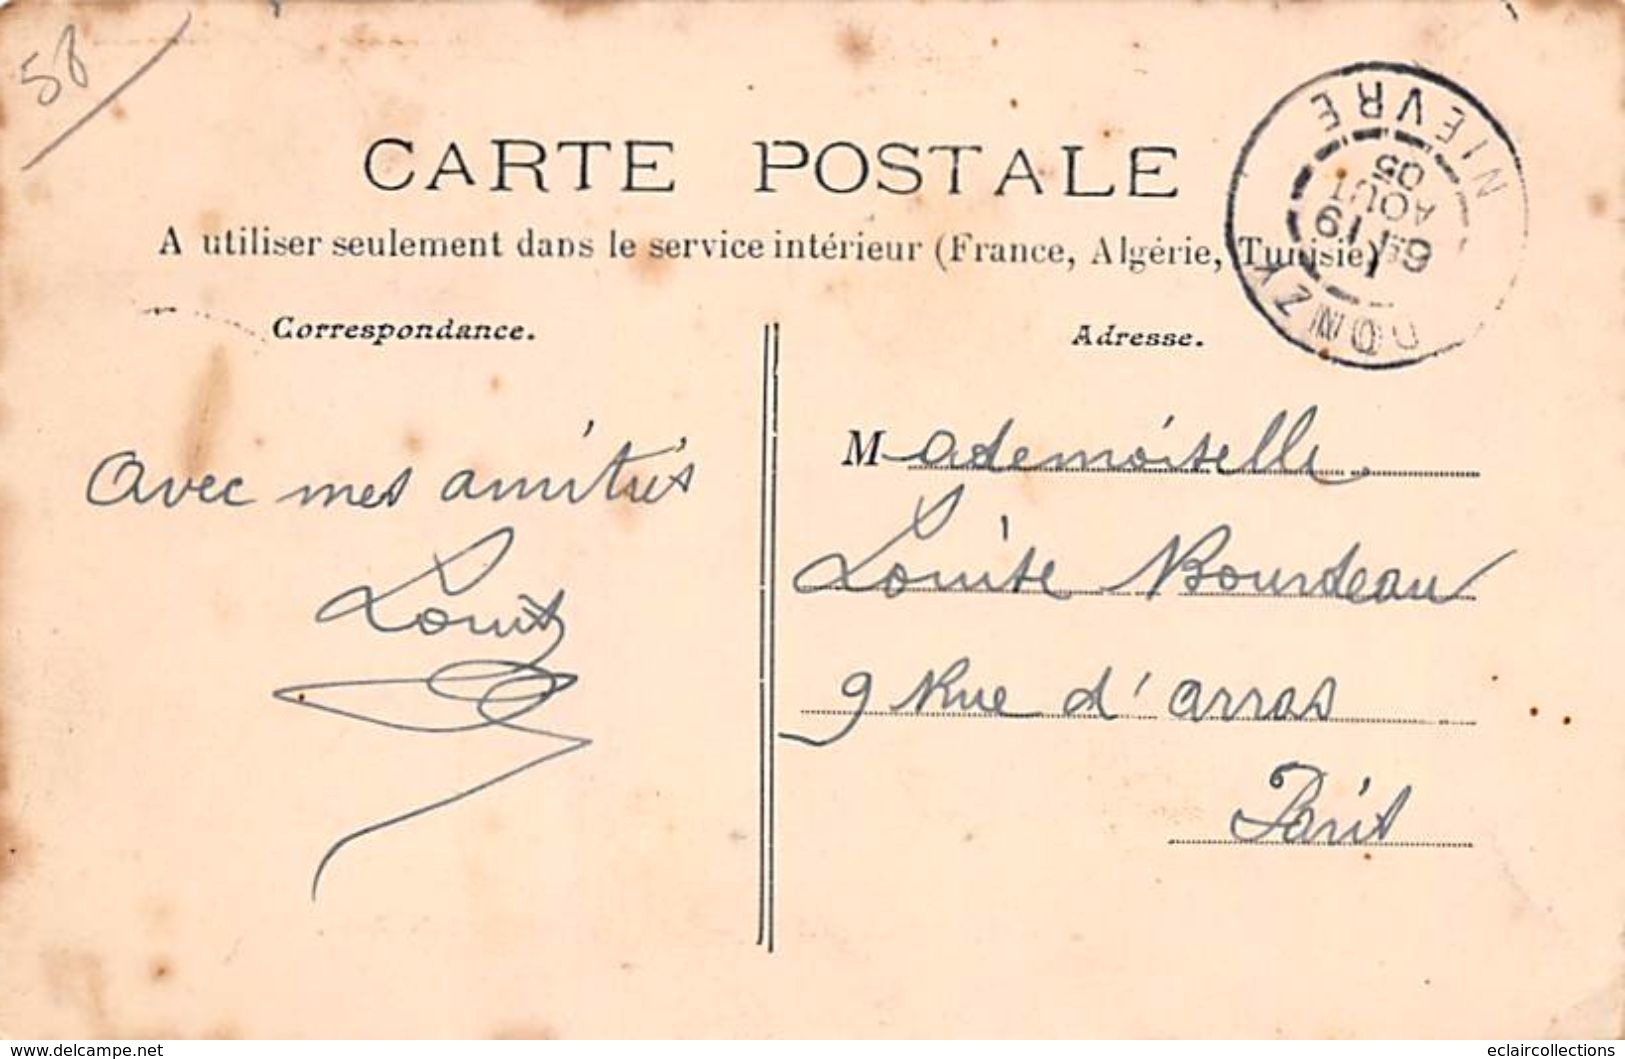 58
CARTE POSTALE
A utiliser seulement dans le service intérieur (France, Algérie, Tunisie)
NIEVRE
05
AOUT
19
DONZY
Correspondance.
Adresse.
avec mes amitiés
Louis
Mademoiselle
Louise Bourdeau
9 Rue d'arras
Paris
www.delcampe.net
eclaircollections